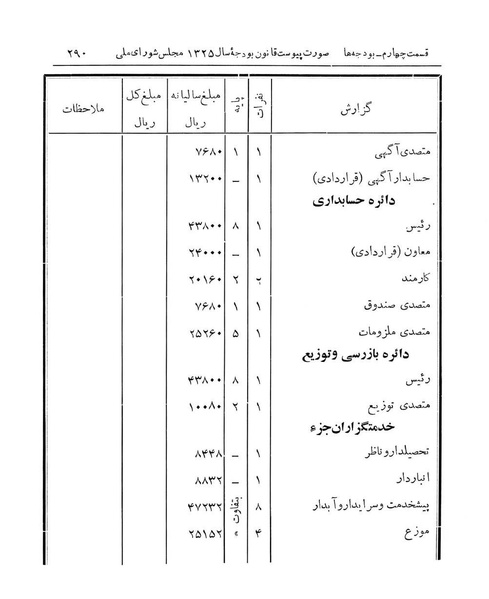 قسمت چهارم – بودجه‌ها صورت پیوست قانون بودجهٔ سال ۱۳۲۵ مجلس شورای ملی ۲۹۰
گزارش نفرات پایه مبلغ سالیانه ریال مبلغ کل ریال ملاحظات
متصدی آگهی ۱ ۱ ۷۶۸۰
حسابدار آگهی (قراردادی) ۱ – ۱۳۲۰۰
دائره حسابداری
رئیس ۱ ۸ ۴۳۸۰۰
معاون (قراردادی) ۱ – ۲۴۰۰۰
کارمند ۲ ۲ ۲۰۱۶۰
متصدی صندوق ۱ ۱ ۷۶۸۰
متصدی ملزومات ۱ ۵ ۲۵۲۶۰
دائره بازرسی و توزیع
رئیس ۱ ۸ ۴۳۸۰۰
متصدی توزیع ۱ ۲ ۱۰۰۸۰
خدمتگزاران جزء
تحصیلدار و ناظر ۱ – ۸۴۴۸
انباردار ۱ – ۸۸۳۲
پیشخدمت و سرایدار و آبدار ۸ بتفاوت ۴۷۲۳۲
موزع ۴ » ۲۵۱۵۲